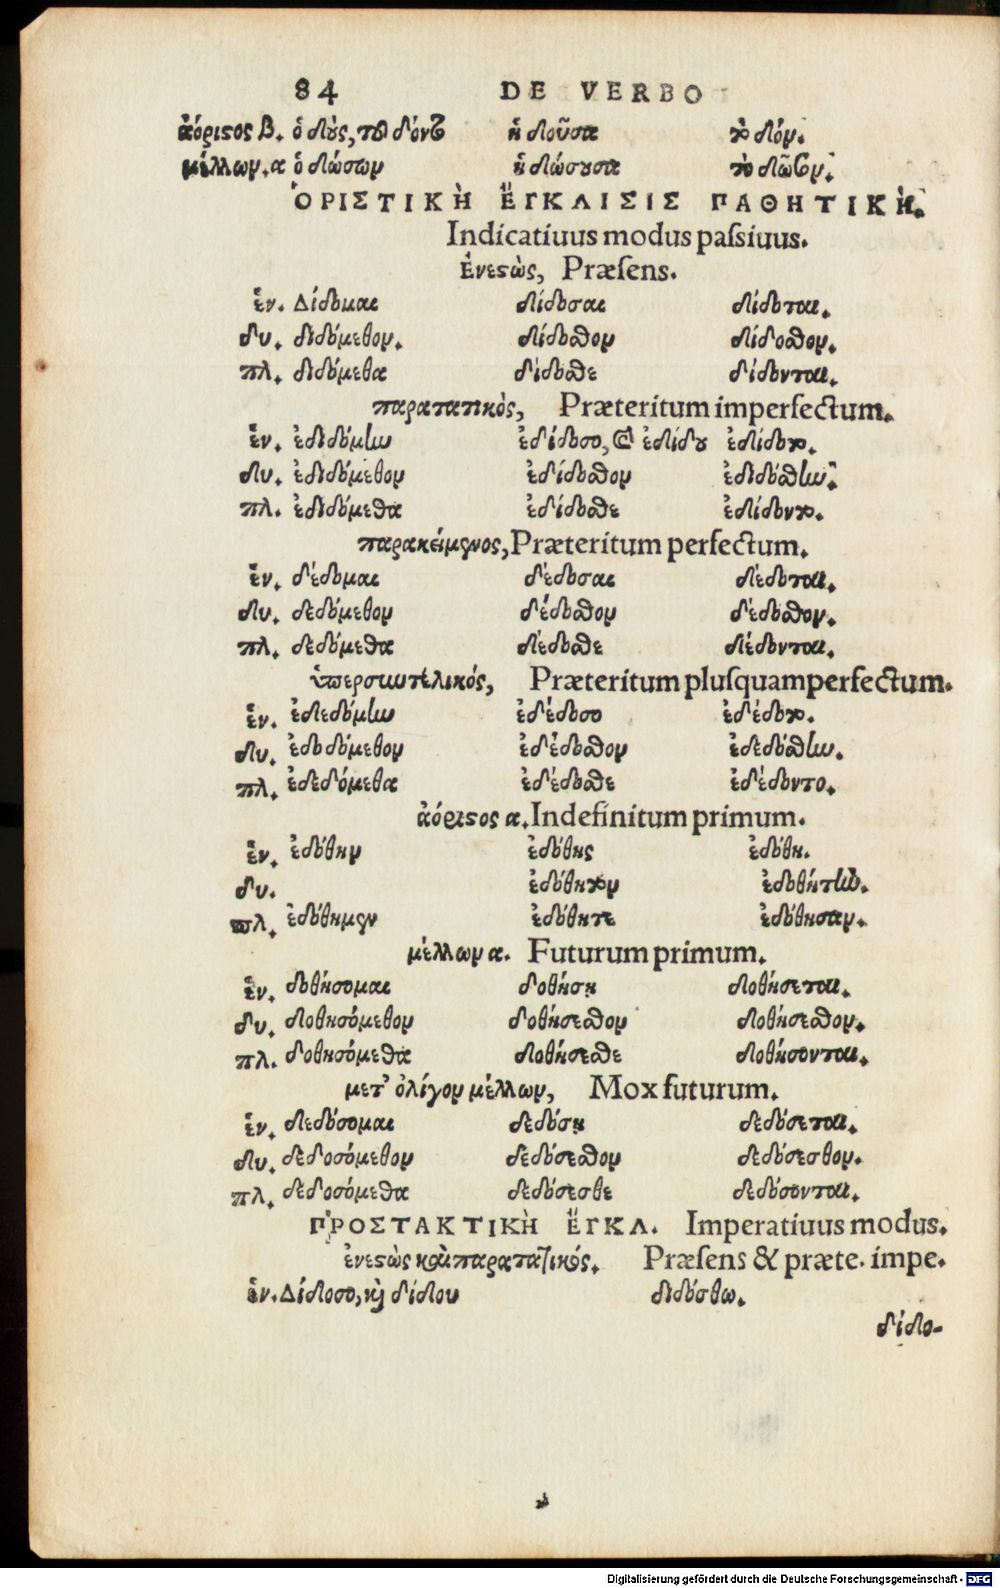 84 DE VERBO
ἀόριστος β. ὁ δούς, τοῦ δόντος ἡ δοῦσα τὸ δόν.
μέλλων. α ὁ δώσων ἡ δώσουσα τὸ δῶσον.
ὉΡΙΣΤΙΚῊ ἜΓΚΛΙΣΙΣ ΠΑΘΗΤΙΚΉ.
Indicatiuus modus paſsiuus.
Ἐνεστὼς, Præſens.
ἑν. Δίδομαι δίδοσαι δίδοται.
δυ. διδόμεθον. δίδοσθον δίδοσθον.
πλ. διδόμεθα δίδοσθε δίδονται.
παρατατικὸς, Præteritum imperfectum.
ἑν. ἐδιδόμην ἐδίδοσο, & ἐδίδου ἐδίδοτο.
δυ. ἐδιδόμεθον ἐδίδοσθον ἐδιδόσθην.
πλ. ἐδιδόμεθα ἐδίδοσθε ἐδίδοντο.
παρακείμενος, Præteritum perfectum.
ἑν. δέδομαι δέδοσαι δέδοται.
δυ. δεδόμεθον δέδοσθον δέδοσθον.
πλ. δεδόμεθα δέδοσθε δέδονται.
ὑπερσυντέλικός, Præteritum pluſquamperfectum.
ἑν. ἐδεδόμην ἐδέδοσο ἐδέδοτο.
δυ. ἐδοδόμεθον ἐδέδοσθον ἐδεδόσθην.
πλ. ἐδεδόμεθα ἐδέδοσθε ἐδέδοντο.
ἀόριστος α. Indefinitum primum.
ἑν. ἐδόθην ἐδόθης ἐδόθη.
δυ. ἐδόθητον ἐδοθήτην.
πλ. ἐδόθημεν ἐδόθητε ἐδόθησαν.
μέλλων α. Futurum primum.
ἑν. δοθήσομαι δοθήσῃ δοθήσεται.
δυ. δοθησόμεθον δοθήσεσθον δοθήσεσθον.
πλ. δοθησόμεθα δοθήσεσθε δοθήσονται.
μετ' ὀλίγον μέλλων, Mox futurum.
ἑν. δεδόσομαι δεδόσῃ δεδόσεται.
δυ. δεδοσόμεθον δεδόσεσθον δεδόσεσθον.
πλ. δεδοσόμεθα δεδόσεσθε δεδόσονται.
ΠΡΟΣΤΑΚΤΙΚῊ ἜΓΚΛ. Imperatiuus modus.
ἐνεστὼς καὶ παρατατικός. Præſens & præte. impe.
ἑν. Δίδοσο, καὶ δίδου διδόσθω.
δίδο-
Digitalisierung gefördert durch die Deutsche Forschungsgemeinschaft - DFG